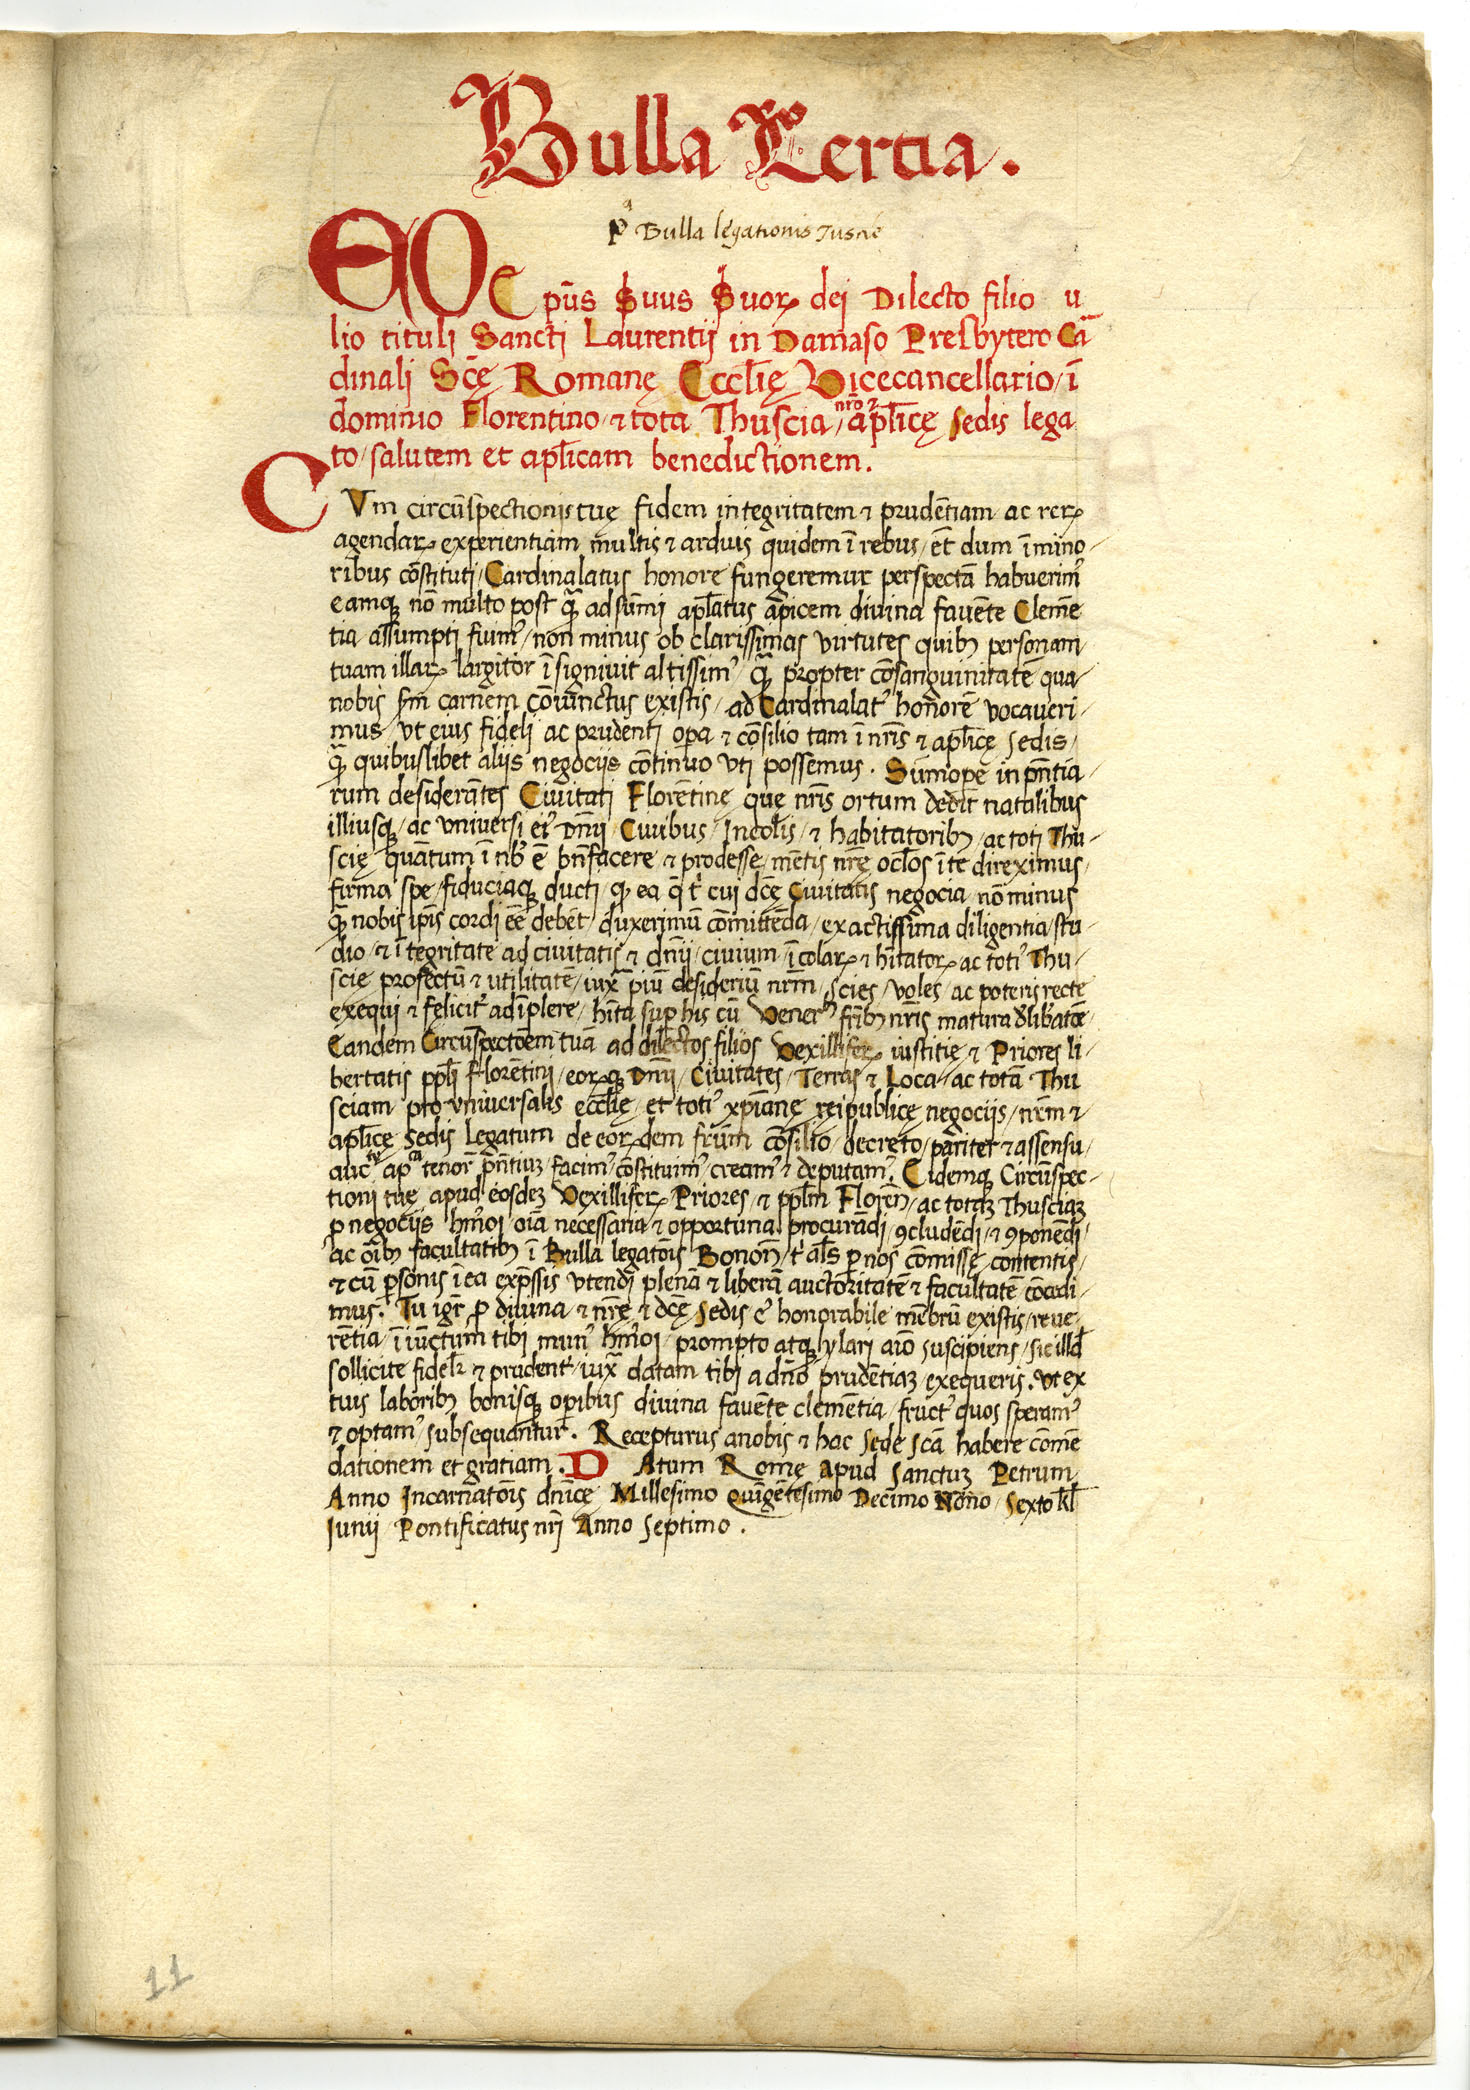 Bulla Tercia.
pª Bulla legationis Tuscie
LEO Ep̄us Seruus Seruorꝝ dei Dilecto filio
lio tituli Sancti Laurentij in Damaso Presbytero Ca̅
dinali Sc̄ę Romanę Eccl̄ię Vicecancellario / ī
dominio Florentino / ⁊ tota Thuscia / nr̄o ⁊ ap̄licę Sedis lega
to / salutem et ap̄licam benedictionem.
CVm circūspectionis tuę fidem integritatem ⁊ prudētiam ac rerꝝ
agendarꝝ experientiam multis ⁊ arduis quidem ī rebus / et dum ī mino-
ribus cōstituti / Cardinalatus honore fungeremur perspectā habuerimꝰ
eamqꝫ nō multo post qꝫ̄ ad sūmi ap̄latus apicem diuina fauēte Clemē
tia assumpti fuimꝰ / non minus ob clarissimas virtutes quibꝫ personam
tuam illarꝝ largitor īsigniuit altissimꝰ / qꝫ̄ propter cōsanguinitatē qua
nobis sm̄ carnem cōiunctus existis / ad Cardinalatꝰ honorē vocaueri-
mus / vt eius fideli ac prudenti opa ⁊ cōsilio tam ī nr̄is ⁊ ap̄licę sedis /
qꝫ̄ quibuslibet aliis negociis cōtinuo vti possemus. Sūmope in pn̄tia
rum desiderātes Ciuitati Florētinę quę nr̄is ortum dedit natalibus
illiusqꝫ / ac vniuersi eiꝰ Dn̄ij / Ciuibus / Incolis / ⁊ habitatoribꝫ / ac toti Thu-
scię quātum ī nb̄ ē bn̄facere ⁊ prodesse / mētis nr̄ę ocl̄os ī te direximus /
firma spe / fiduciaqꝫ ducti / qꝫ ea cui dc̄ę Ciuitatis negocia / nō minus
qꝫ̄ nobis ip̄is cordi eē debēt / duxerimꝰ cōmittēda / exactissima diligentia / stu
dio / ⁊ ītegritate ad ciuitatis ⁊ dn̄ij / ciuium / īcolarꝝ ⁊ hītatorꝝ ac totiꝰ Thu-
scie profectū ⁊ utilitatē / iux̄ piū desideriū nr̄m / scies / voles / ac poteris recte
exequi ⁊ feliciť adīplere / hīta suꝑ his cū Venerˡⁱᵇꝫ fr̄ibꝫ nr̄is matura dl̄ibatōe /
Eandem Circūspectōem tuā ad dilectos filios Vexilliferꝝ iustitię / ⁊ Priores li-
bertatis pp̄li Florētini / eorꝝqꝫ Dn̄ij / Ciuitates / Terras ⁊ Loca / ac totā Thu
sciam pro vniuersalis eccl̄ię / et totiꝰ xp̄ianę reipublicę negociis / nr̄m ⁊
ap̄licę Sedis Legatum de eorꝝdem fr̄um cōsilio / decreto / pariter ⁊ assensu /
aucᵗᵉ apᶜᵃ tenorˉ pn̄tiuꝫ / facimꝰ cōstituimꝰ creamꝰ ⁊ deputamꝰ. Eidemqꝫ Circūspec-
tioni tuę apud eosdeꝫ Vexilliferꝝ / Priores / ⁊ pp̄lm Floren̄ / ac totaꝫ Thusciaꝫ
ꝓ negociis hmōi / oīa necessaria ⁊ opportuna procurādi / ꝯcludēdi / ⁊ ꝯponēdi /
ac oībꝫ facultatibꝫ ī Bulla legatōis Bonon̄ / als̄ ꝑ nos cōmissę contentis /
⁊ cū ꝑsonis ī ea exp̄ssis vtendi plenā ⁊ liberā auctoritatē ⁊ facultatē cōcedi-
mus. Tu igr̄ ꝓ diuina / ⁊ nr̄ę ⁊ dc̄ę Sedis cꝰ honorabile mēbrū existis / reue-
rētia / īiūctum tibi munꝰ hmōi / prompto atqꝫ hylari aīo suscipiens / sic illd̄
sollicite fidelr̄ ⁊ prudentˀ / iux̄ datam tibi a dn̄o prudētiaꝫ / exequeris. Vt ex
tuis laboribꝫ bonisqꝫ opibus diuina fauēte clemētia / fructꝰ quos speramꝰ
⁊ optamꝰ / subsequantur. Recepturus a nobis ⁊ hac Sede Scā habere cōmē
dationem et gratiam. DAtum Romę Apud Sanctuꝫ Petrum
Anno Incarnatōis dn̄icę Millesimo Quīgētesimo Decimo Nono / Sexto Kl̄
Iunij Pontificatus nr̄i Anno Septimo.
11